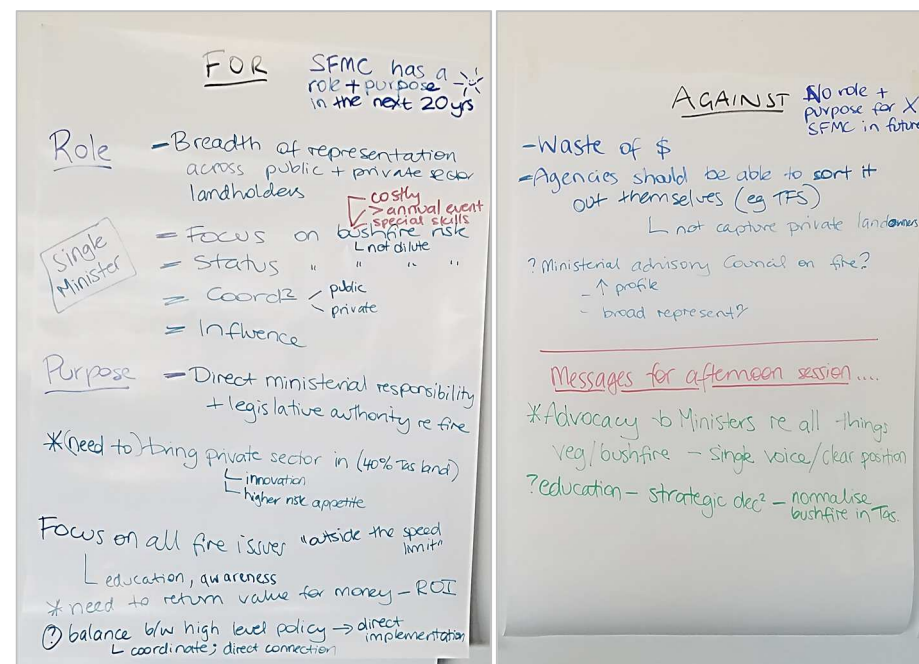 FOR
SFMC has a
role + purpose
in the next 20yrs
Role
- Breadth of representation
across public + private sector
landholders
costly
> annual event
special skills
Single
Minister
= Focus on bushfire risk
└ not dilute
= Status " " " "
= Coord² < public
private
= Influence
Purpose
- Direct ministerial responsibility
+ legislative authority re fire
*(need to) bring private sector in (40% Tas land)
└ innovation
└ higher risk appetite
Focus on all fire issues "outside the speed
limit"
└ education, awareness
* need to return value for money - ROI
? balance b/w high level policy → direct
implementation
└ coordinate; direct connection
AGAINST
No role +
purpose for X
SFMC in future
- Waste of $
- Agencies should be able to sort it
out themselves (eg TFS)
└ not capture private landowners
? Ministerial advisory Council on fire?
- ↑ profile
- broad represent?
Messages for afternoon session....
*Advocacy to Ministers re all things
veg/bushfire - single voice/clear position
? education - strategic dec² - normalise
bushfire in Tas.